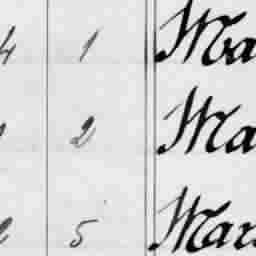 4 1 Ma
2 Ma
5 Mar